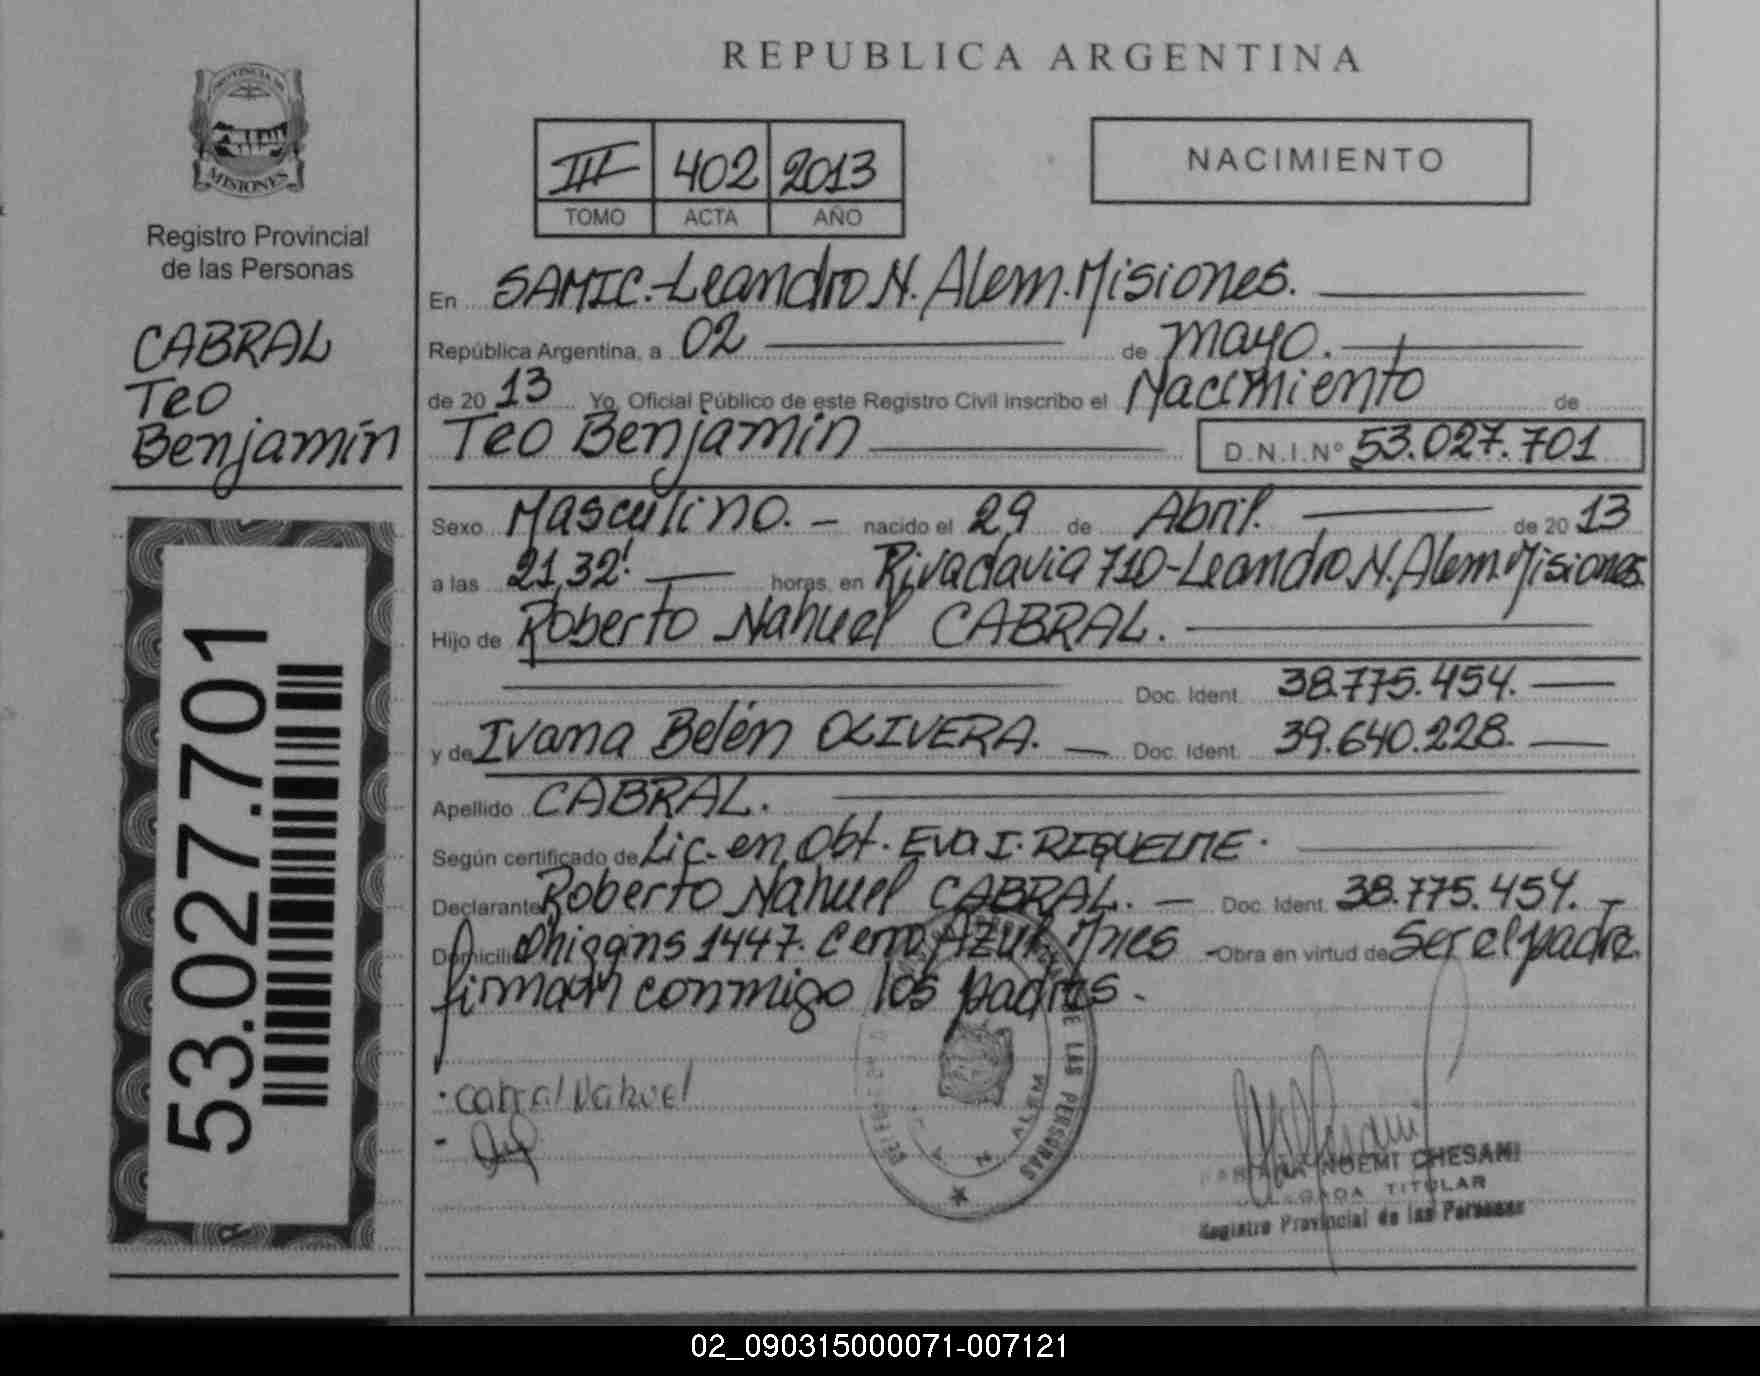 REPUBLICA ARGENTINA
PROVINCIA DE
MISIONES
Registro Provincial
de las Personas
CABRAL
Teo
Benjamín
53.027.701
III 402 2013
TOMO ACTA AÑO
NACIMIENTO
En SAMIC.-Leandro N. Alem. Misiones.
República Argentina, a 02 de mayo.
de 2013 Yo, Oficial Público de este Registro Civil inscribo el Nacimiento de
Teo Benjamín D.N.I.Nº 53.027.701
Sexo Masculino. nacido el 29 de Abril. de 2013
a las 21,32! horas, en Rivadavia 710-Leandro N. Alem. Misiones.
Hijo de Roberto Nahuel CABRAL.
Doc. Ident. 38.775.454.
y de Ivana Belén OLIVERA. Doc. Ident. 39.640.228.
Apellido CABRAL.
Según certificado de Lic. en Obt. Eva I. RIQUELME.
Declarante Roberto Nahuel CABRAL. Doc. Ident. 38.775.454.
Domicilio Ohiggins 1447. Cerro Azul, Mnes -Obra en virtud de Ser el padre.
firman conmigo los padres.
Cabral Nahuel
DE LAS PERSONAS
N. ALEM
NOEMI CHESANI
TITULAR
Registro Provincial de las Personas
02_090315000071-007121